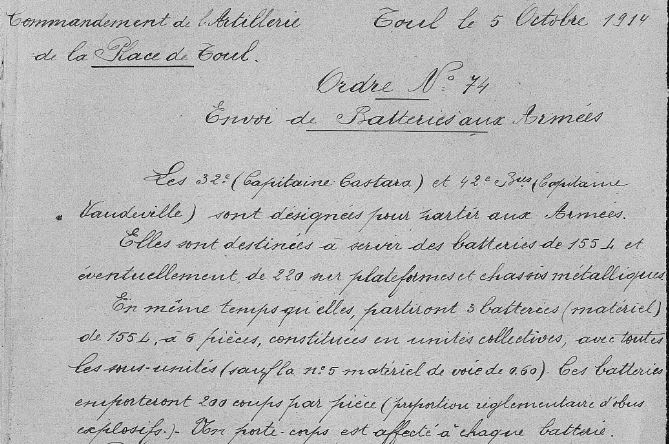 Commandement de l'Artillerie Toul le 5 Octobre 1914
de la Place de Toul.
Ordre No. 74
Envoi de Batteries aux Armées
Les 32e (Capitaine Castara) et 42e Bies (Capitaine
Vaudeville) sont désignées pour partir aux Armées.
Elles sont destinées à servir des batteries de 155 L et
éventuellement, de 220 sur plateformes et chassis métalliques
En même temps qu'elles, partiront 3 batteries (matériel)
de 155 L, à 6 pièces, constituées en unités collectives, avec toutes
les sous-unités (sauf la no 5 matériel de voie de 0.60). Ces batteries
emporteront 200 coups par pièce (proportion réglementaire d'obus
explosifs.)- Un porte-corps est affecté à chaque batterie.